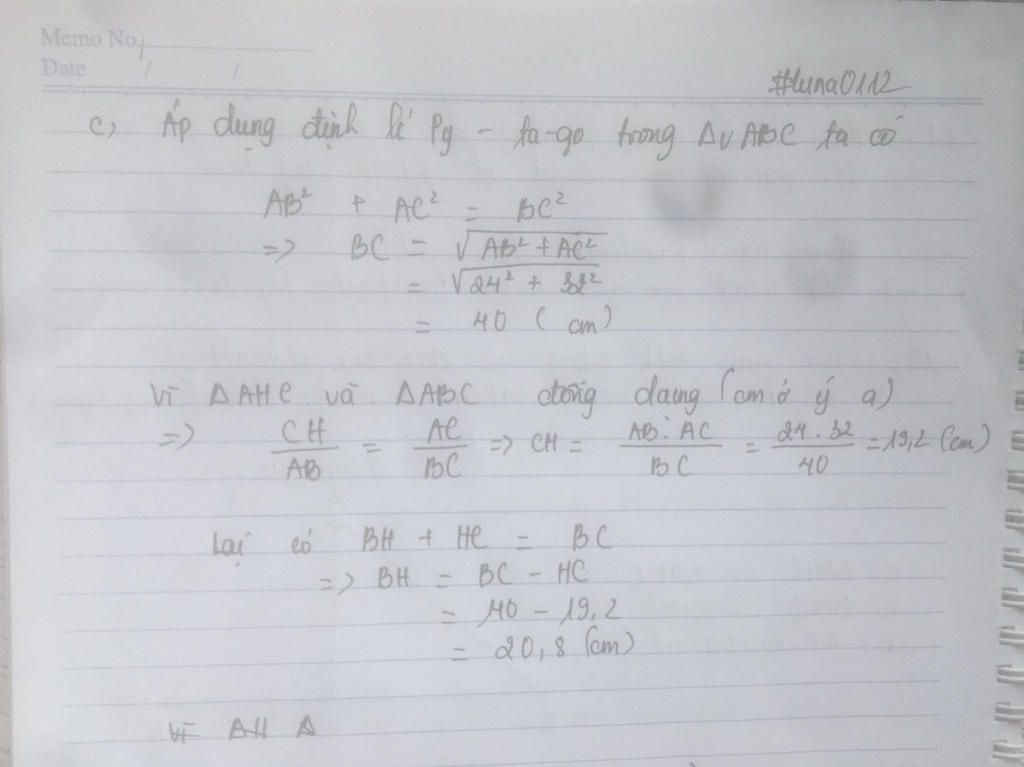 Memo No.
Date / /
#luna0112
c, Áp dụng định lí Py - ta-go trong Δv ABC ta có
AB² + AC² = BC²
=> BC = √(AB² + AC²)
= √(24² + 32²)
= 40 (cm)
Vì ΔAHC và ΔABC đồng dạng (cm ở ý a)
=> CH/AB = AC/BC => CH = AB.AC/BC = 24.32/40 = 19,2 (cm)
Lại có BH + HC = BC
=> BH = BC - HC
= 40 - 19,2
= 20,8 (cm)
Vì ΔH Δ